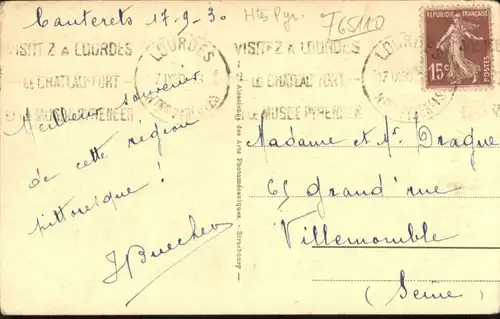 Cauterets 17-9-30
Htes Pyr.
T65110
VISITEZ A LOURDES
LE CHATEAU-FORT
ET LE MUSEE PYRENEEN
LOURDES
VISITEZ A LOURDES
LE CHATEAU FORT
ET LE MUSEE PYRENEEN
LOURDES
REPUBLIQUE FRANÇAISE
15c
POSTES
Meilleurs souvenirs
de cette région
pittoresque !
Alsacienne des Arts Photomécaniques, - Strasbourg -
Madame et Mr
65 Grand'rue
Villemomble
(Seine)